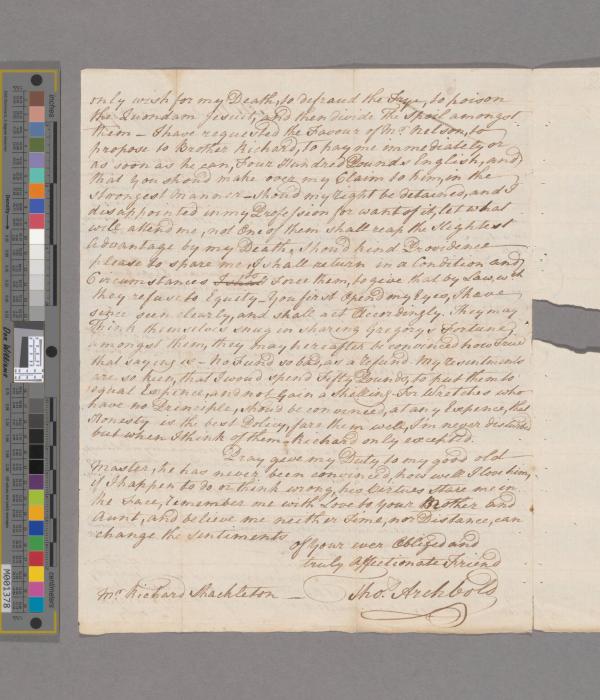 only wish for my Death, to defraud the Frye, to poison
the Quondam Jesuit, and then divide the Spoil amongst
them – I have requested the Favour of Mr. Nelson, to
propose to Brother Richard, to pay me immediately or
as soon as he can, Four Hundred Pounds English, and
that you shoud make over my Claim to him, in the
strongest manner – shoud my right be detained, and I
disappointed in my Profession for want of it, let what
will attend me, not One of them shall reap the Slightest
Advantage by my Death, Shou'd kind Providence
please to spare me, I shall return in a Condition and
Circumstances to force them, to give that by Law, wch
they refuse to Equity – You first Open'd my Eyes, I have
since seen clearly, and shall act Accordingly. They may
Think themselves snug in sharing Gregory's Fortune
amongst them, they may hereafter be convinced how True
that saying is – No Fund so bad, as a refund. My resentments
are so keen, that I woud spend Fifty Pounds, to put them to
equal Expence, and not Gain a Shelling. For Wretches who
have no Principle, shoud be convinced, at any Expence, that
Honesty is the best Policy, fare them well, I'm never disturbd
but when I think of them – Richard only excepted.
Pray give my Duty to my good old
Master, he has never been convinced, how well I love him,
if I happen to do or think wrong, his Virtues Stare me in
the Face, remember me with Love to your Mother and
Aunt, and believe me neither Time, nor Distance, can
change the Sentiments
of Your ever Obliged and
truly Affectionate Friend
Mr. Richard Shackleton – Thos. Archbold
inches
centimeters
Don Williams
M001378